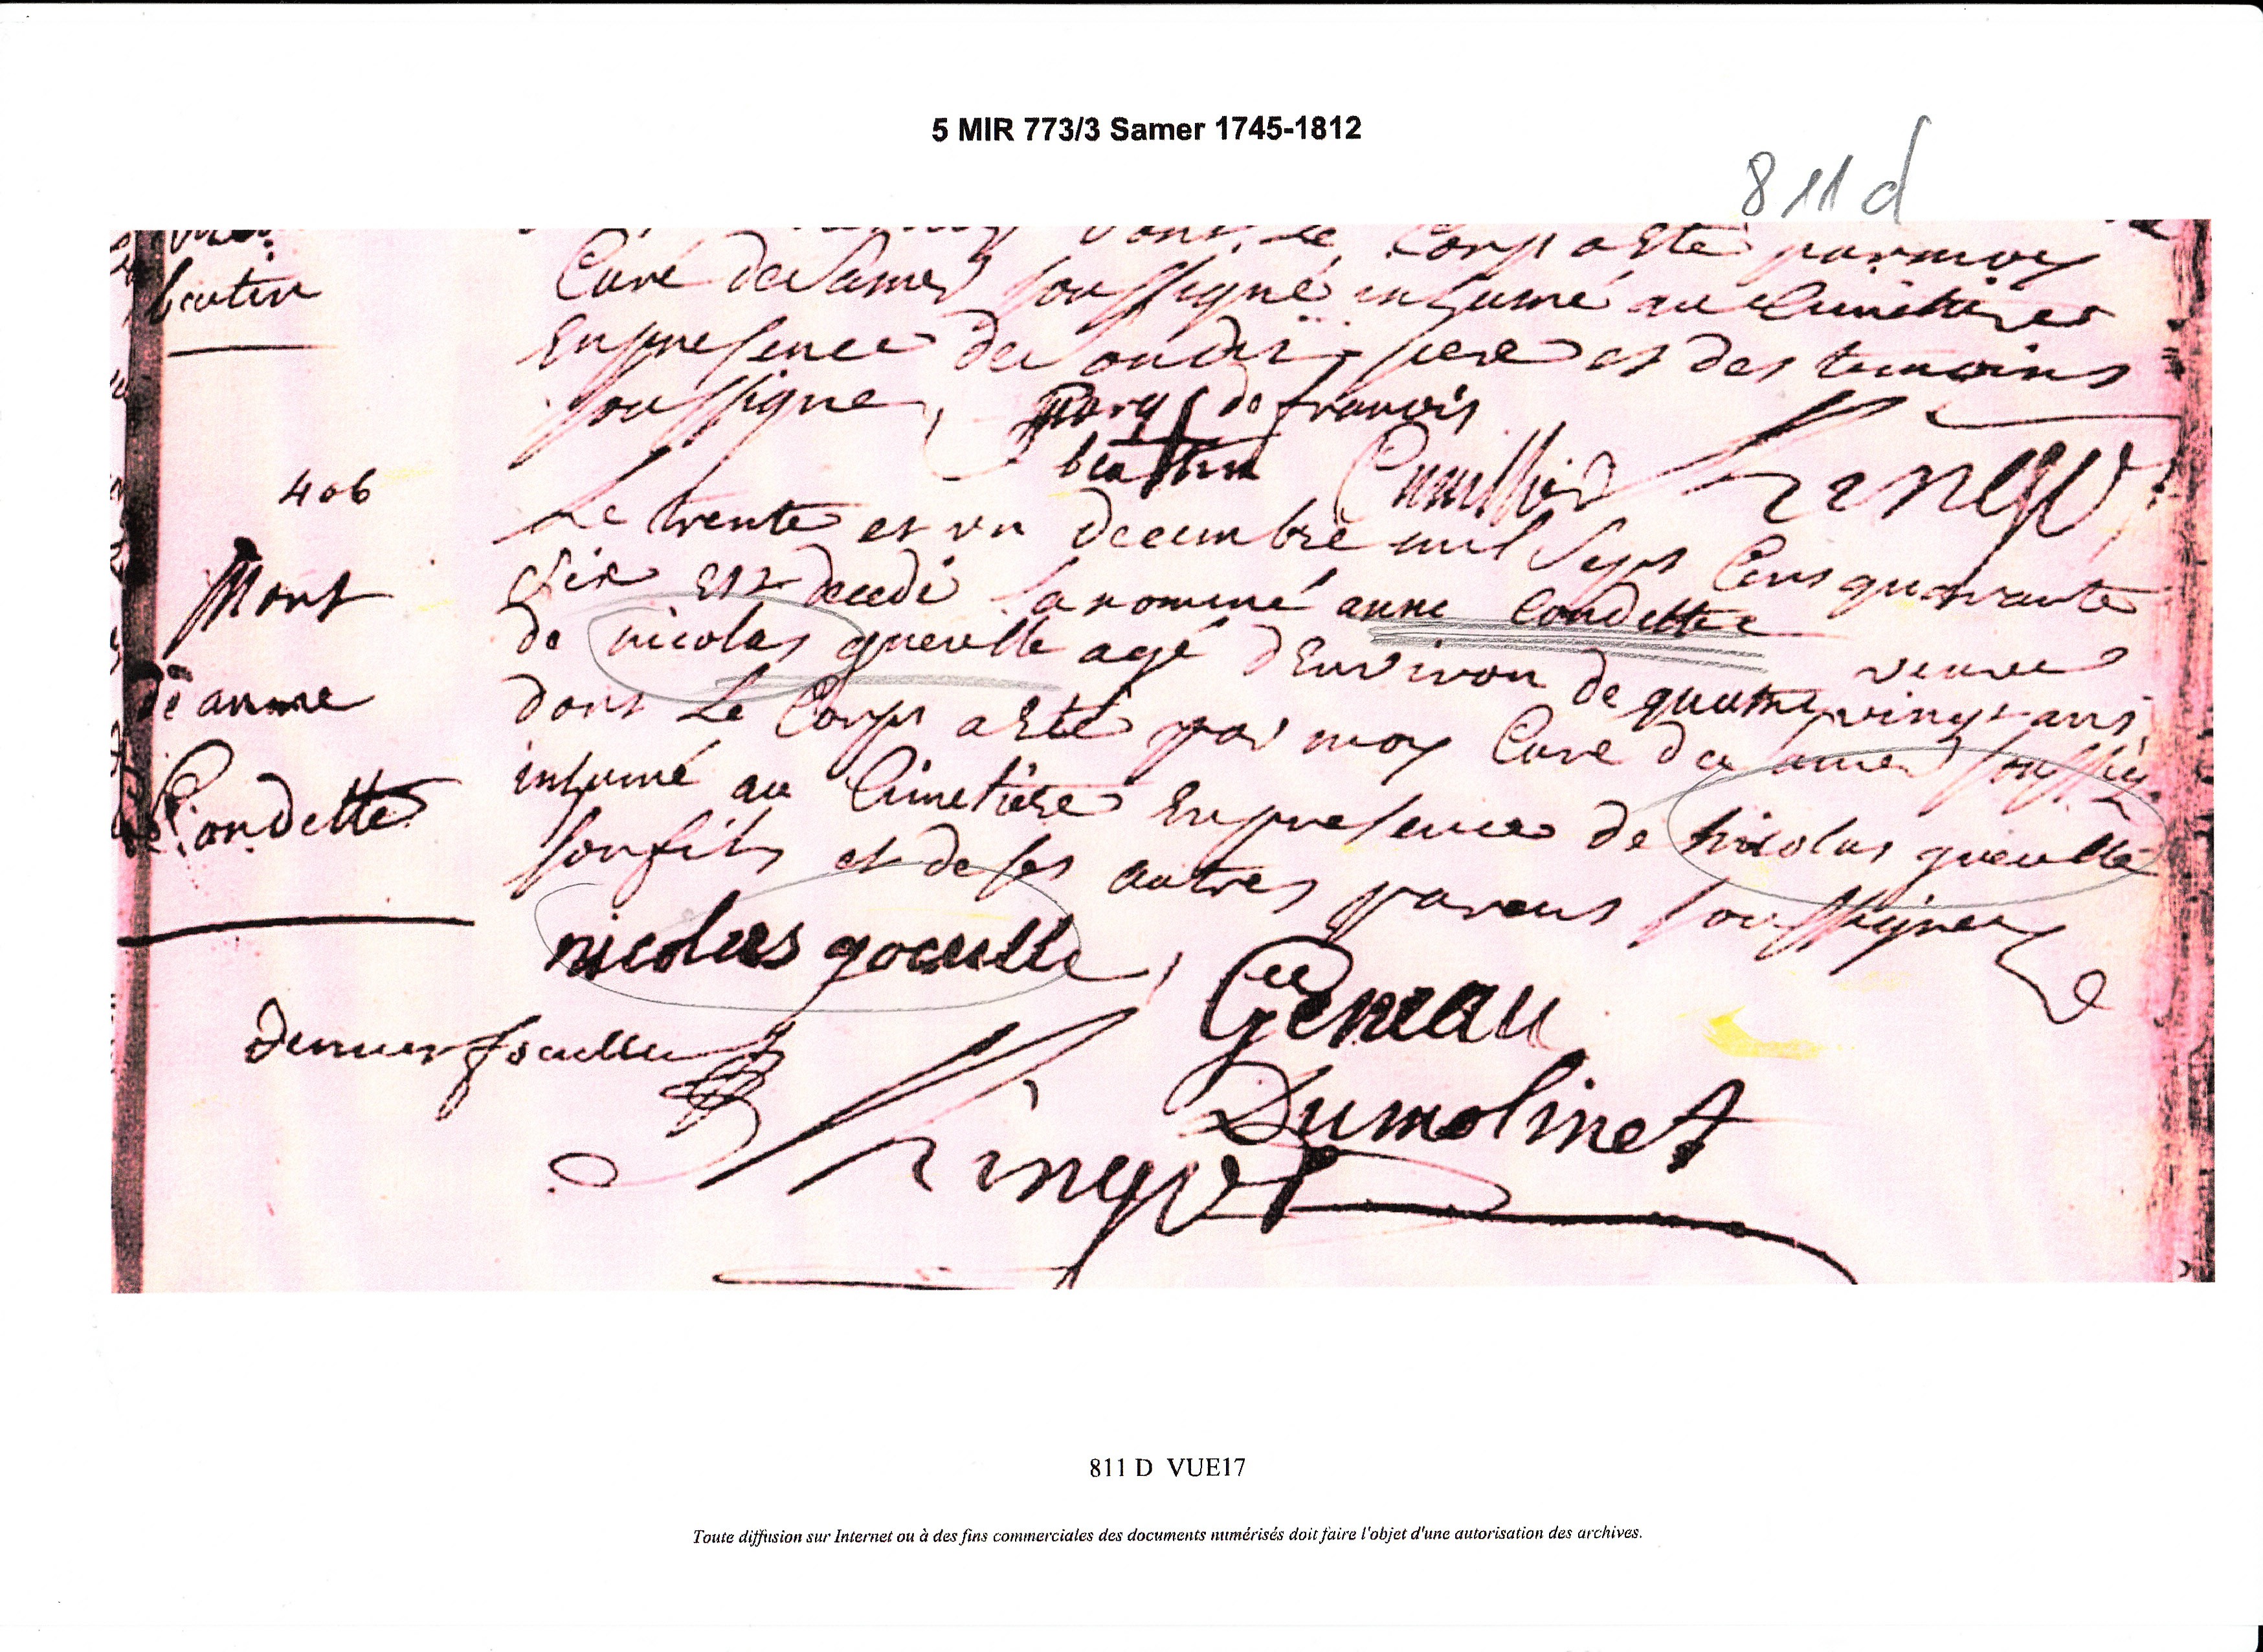 5 MIR 773/3 Samer 1745-1812
811 d
dont Le Corps a Esté par moy
beutin
Curé de Samer soussigné inhumé au Cimetiere
En presence de son dit pere et des temoins
soussigne, marq de francois
beutin
406
Le trente et un decembre mil Sept Cens quarante
six Est decedé la nommé anne Condette
veuve
Mort
de anne
Condette
de nicolas queulle agé d'Environ de quatre vingt ans
dont Le Corps a Esté par moy Curé de Samer soussig
inhumé au Cimetiere En presence de nicolas queulle
son fils et de ses autres parens soussignez
nicolas goeulle
Geneau
Dumolinet
811 D VUE17
Toute diffusion sur Internet ou à des fins commerciales des documents numérisés doit faire l'objet d'une autorisation des archives.